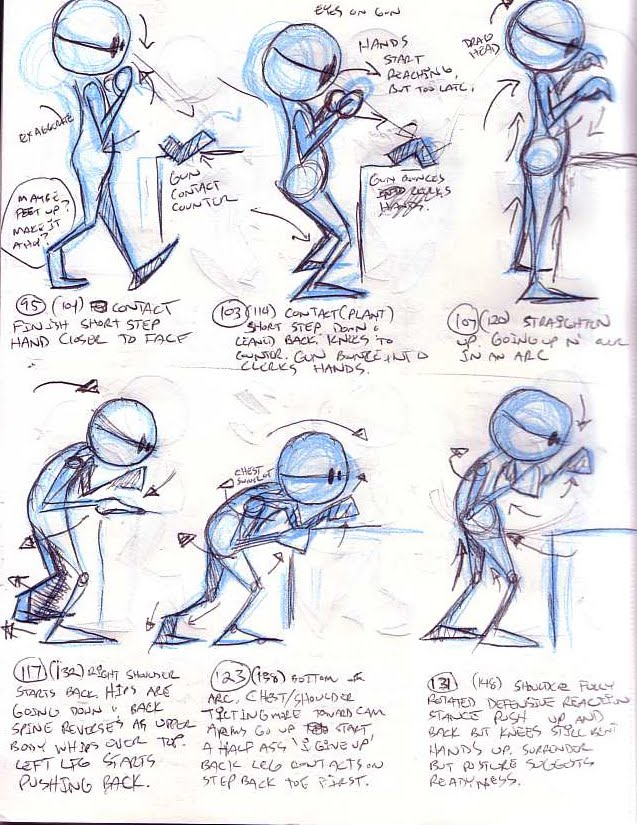 EYES ON GUN
HANDS
START
REACHING,
BUT TOO LATE.
DRAG
HEAD
EXAGGERATE
GUN
CONTACT
COUNTER
GUN BOUNCES
CLERKS
HANDS.
MAYBE
FEET UP?
MAKE IT
95 (104) CONTACT
FINISH SHORT STEP
HAND CLOSER TO FACE
103 (114) CONTACT (PLANT)
SHORT STEP DOWN &
LEANED BACK. KNEES TO
COUNTER. GUN BOUNCE INTO
CLERKS HANDS.
107 (120) STRAIGHTEN
UP. GOING UP N'
IN AN ARC
CHEST
117 (132) RIGHT SHOULDER
STARTS BACK. HIPS ARE
GOING DOWN & BACK
SPINE REVERSES AS UPPER
BODY WHIPS OVER TOP.
LEFT LEG STARTS
PUSHING BACK.
123 (138) BOTTOM OF
ARC. CHEST/SHOULDER
TILTING MORE TOWARD CAM
ARMS GO UP START
A HALF ASS 'I GIVE UP'
BACK LEG CONTACTS ON
STEP BACK TOE FIRST.
131 (148) SHOULDER FULLY
ROTATED DEFENSIVE REACTION
STANCE PUSH UP AND
BACK BUT KNEES STILL BENT
HANDS UP, SURRENDER
BUT POSTURE SUGGESTS
READYNESS.